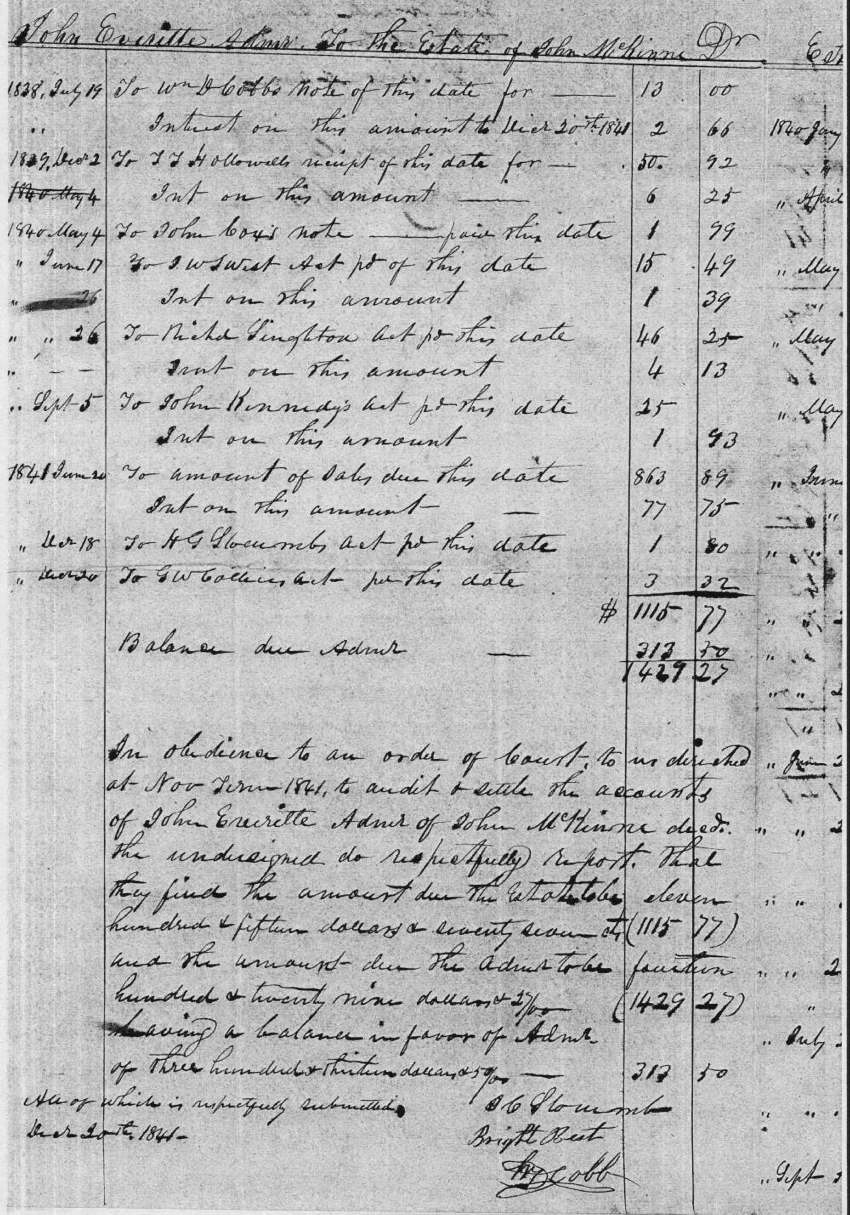 John Everitte Admr. To the Estate of John McKinne Dr. Est
1838, July 19 To Wm D Cobbs note of this date for — 13 00
" Interest on this amount to Decr 20th 1841 2 66 1840 Jany
1839, Decr 2 To T T Hollowells reciept of this date for — 50. 92 "
1840 May 4 Int on this amount — 6 25 " April
1840 May 4 To John Cox's note — paid this date 1 99
" June 17 To J W S West Act pd of this date 15 49 " May
" 26 Int on this amount 1 39 "
" " 26 To Richd Singlton Act pd this date 46 25 " May
" — — Int on this amount 4 13
" Sept 5 To John Kennedy's Act pd this date 25 " May
Int on this amount 1 93
1841 June 20 To amount of Sales due this date 863 89 " June
Int on this amount — 77 75 "
" Decr 18 To H G Slocumbs Act pd this date 1 80 " "
" Decr 20 To G W Collins act pd this date 3 32
$ 1115 77 " 2
Balance due Admr — 313 50 "
1429 27
" " 2
"
In obedience to an order of Court, to us directed " June 2
at Nov Term 1841, to audit & settle the accounts
of John Everitte Admr of John McKinne decd. " " 2
the undersigned do respectfully report. That
they find the amount due the Estate to be eleven " "
hundred & fifteen dollars & seventy seven cts (1115 77)
and the amount due the Admr to be fourteen " " 2
hundred & twenty nine dollars & 27/00 (1429 27) "
leaving a balance in favor of Admr. " July
of three hundred & thirteen dollars & 50/00 — 313 50
All of which is respectfully submitted, J C Slocumb " "
Decr 20th, 1841- Bright Best
W D Cobb " Sept